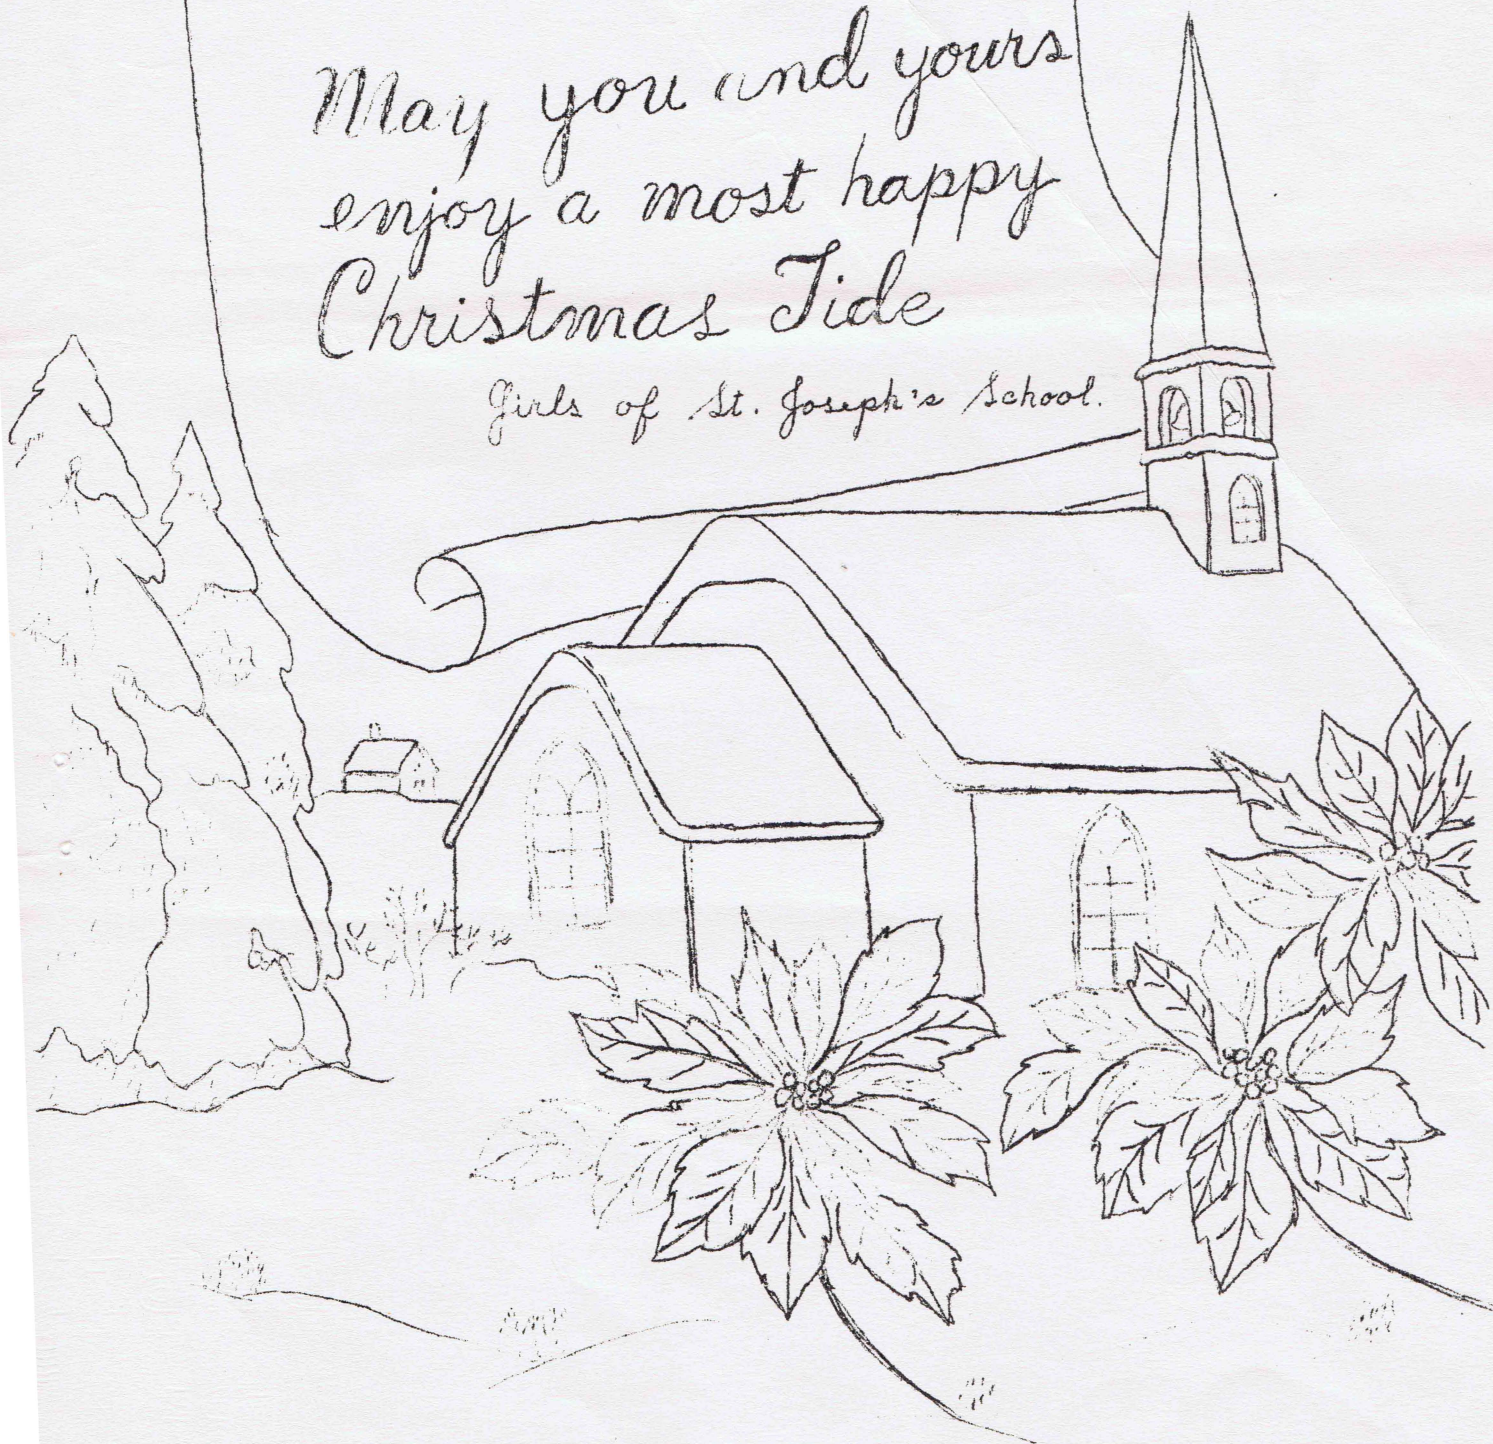 May you and yours
enjoy a most happy
Christmas Tide
Girls of St. Joseph's School.